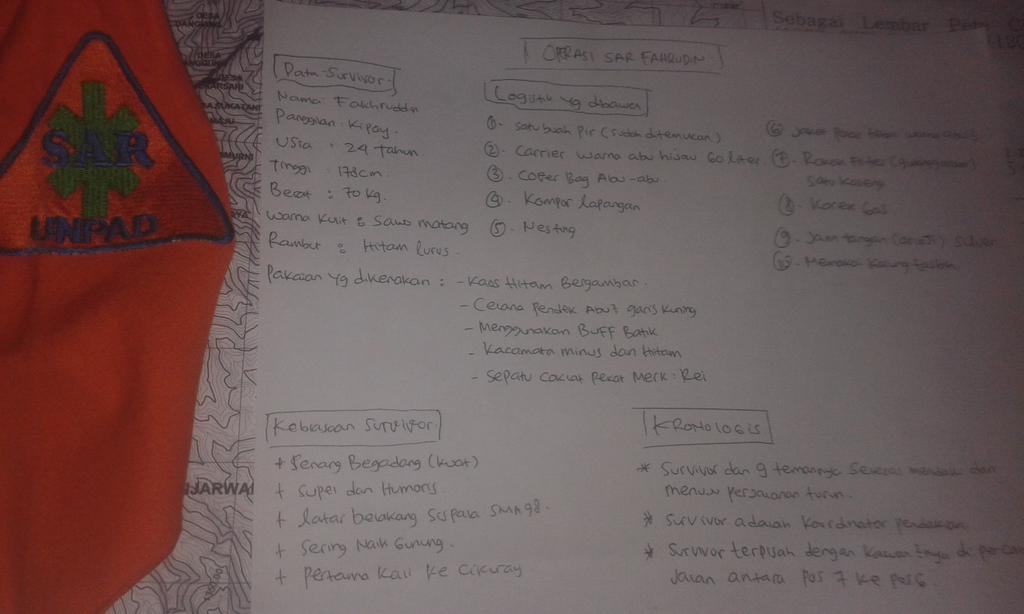 SAR
UNPAD
Sebagai Lembar
JARWA
OPERASI SAR FAHRUDIN
Data Survivor
Nama : Fakhruddin
Panggilan : Kipay.
Usia : 24 tahun
Tinggi : 178cm
Berat : 70 kg.
Warna Kulit : Sawo matang
Rambut : Hitam lurus.
Pakaian yg dikenakan : - Kaos Hitam Bergambar.
- Celana Pendek Abu2 garis kuning
- Menggunakan Buff Batik
- Kacamata minus dan Hitam
- Sepatu Coklat Pekat Merk : Rei
Logistik yg dibawa
1. satu buah Pir (sudah ditemukan)
2. Carrier warna abu hijau 60 liter
3. Cover Bag Abu-abu.
4. Kompor lapangan
5. Nesting
6.
7. Rokok Filter
satu
8. Korek Gas
9. Jam tangan silver
10. Memakai
Kebiasaan Survivor
+ Senang Begadang (kuat)
+ Supel dan Humoris.
+ latar belakang Sispala SMA 98.
+ Sering Naik Gunung.
+ Pertama kali ke Cikuray
KRONOLOGIS
* Survivor dan 9 temannya selesai dan
menuju perjalanan turun.
* Survivor adalah Koordinator pendakian
* Survivor terpisah dengan kawan2nya di
Jalan antara Pos 7 ke Pos 6.